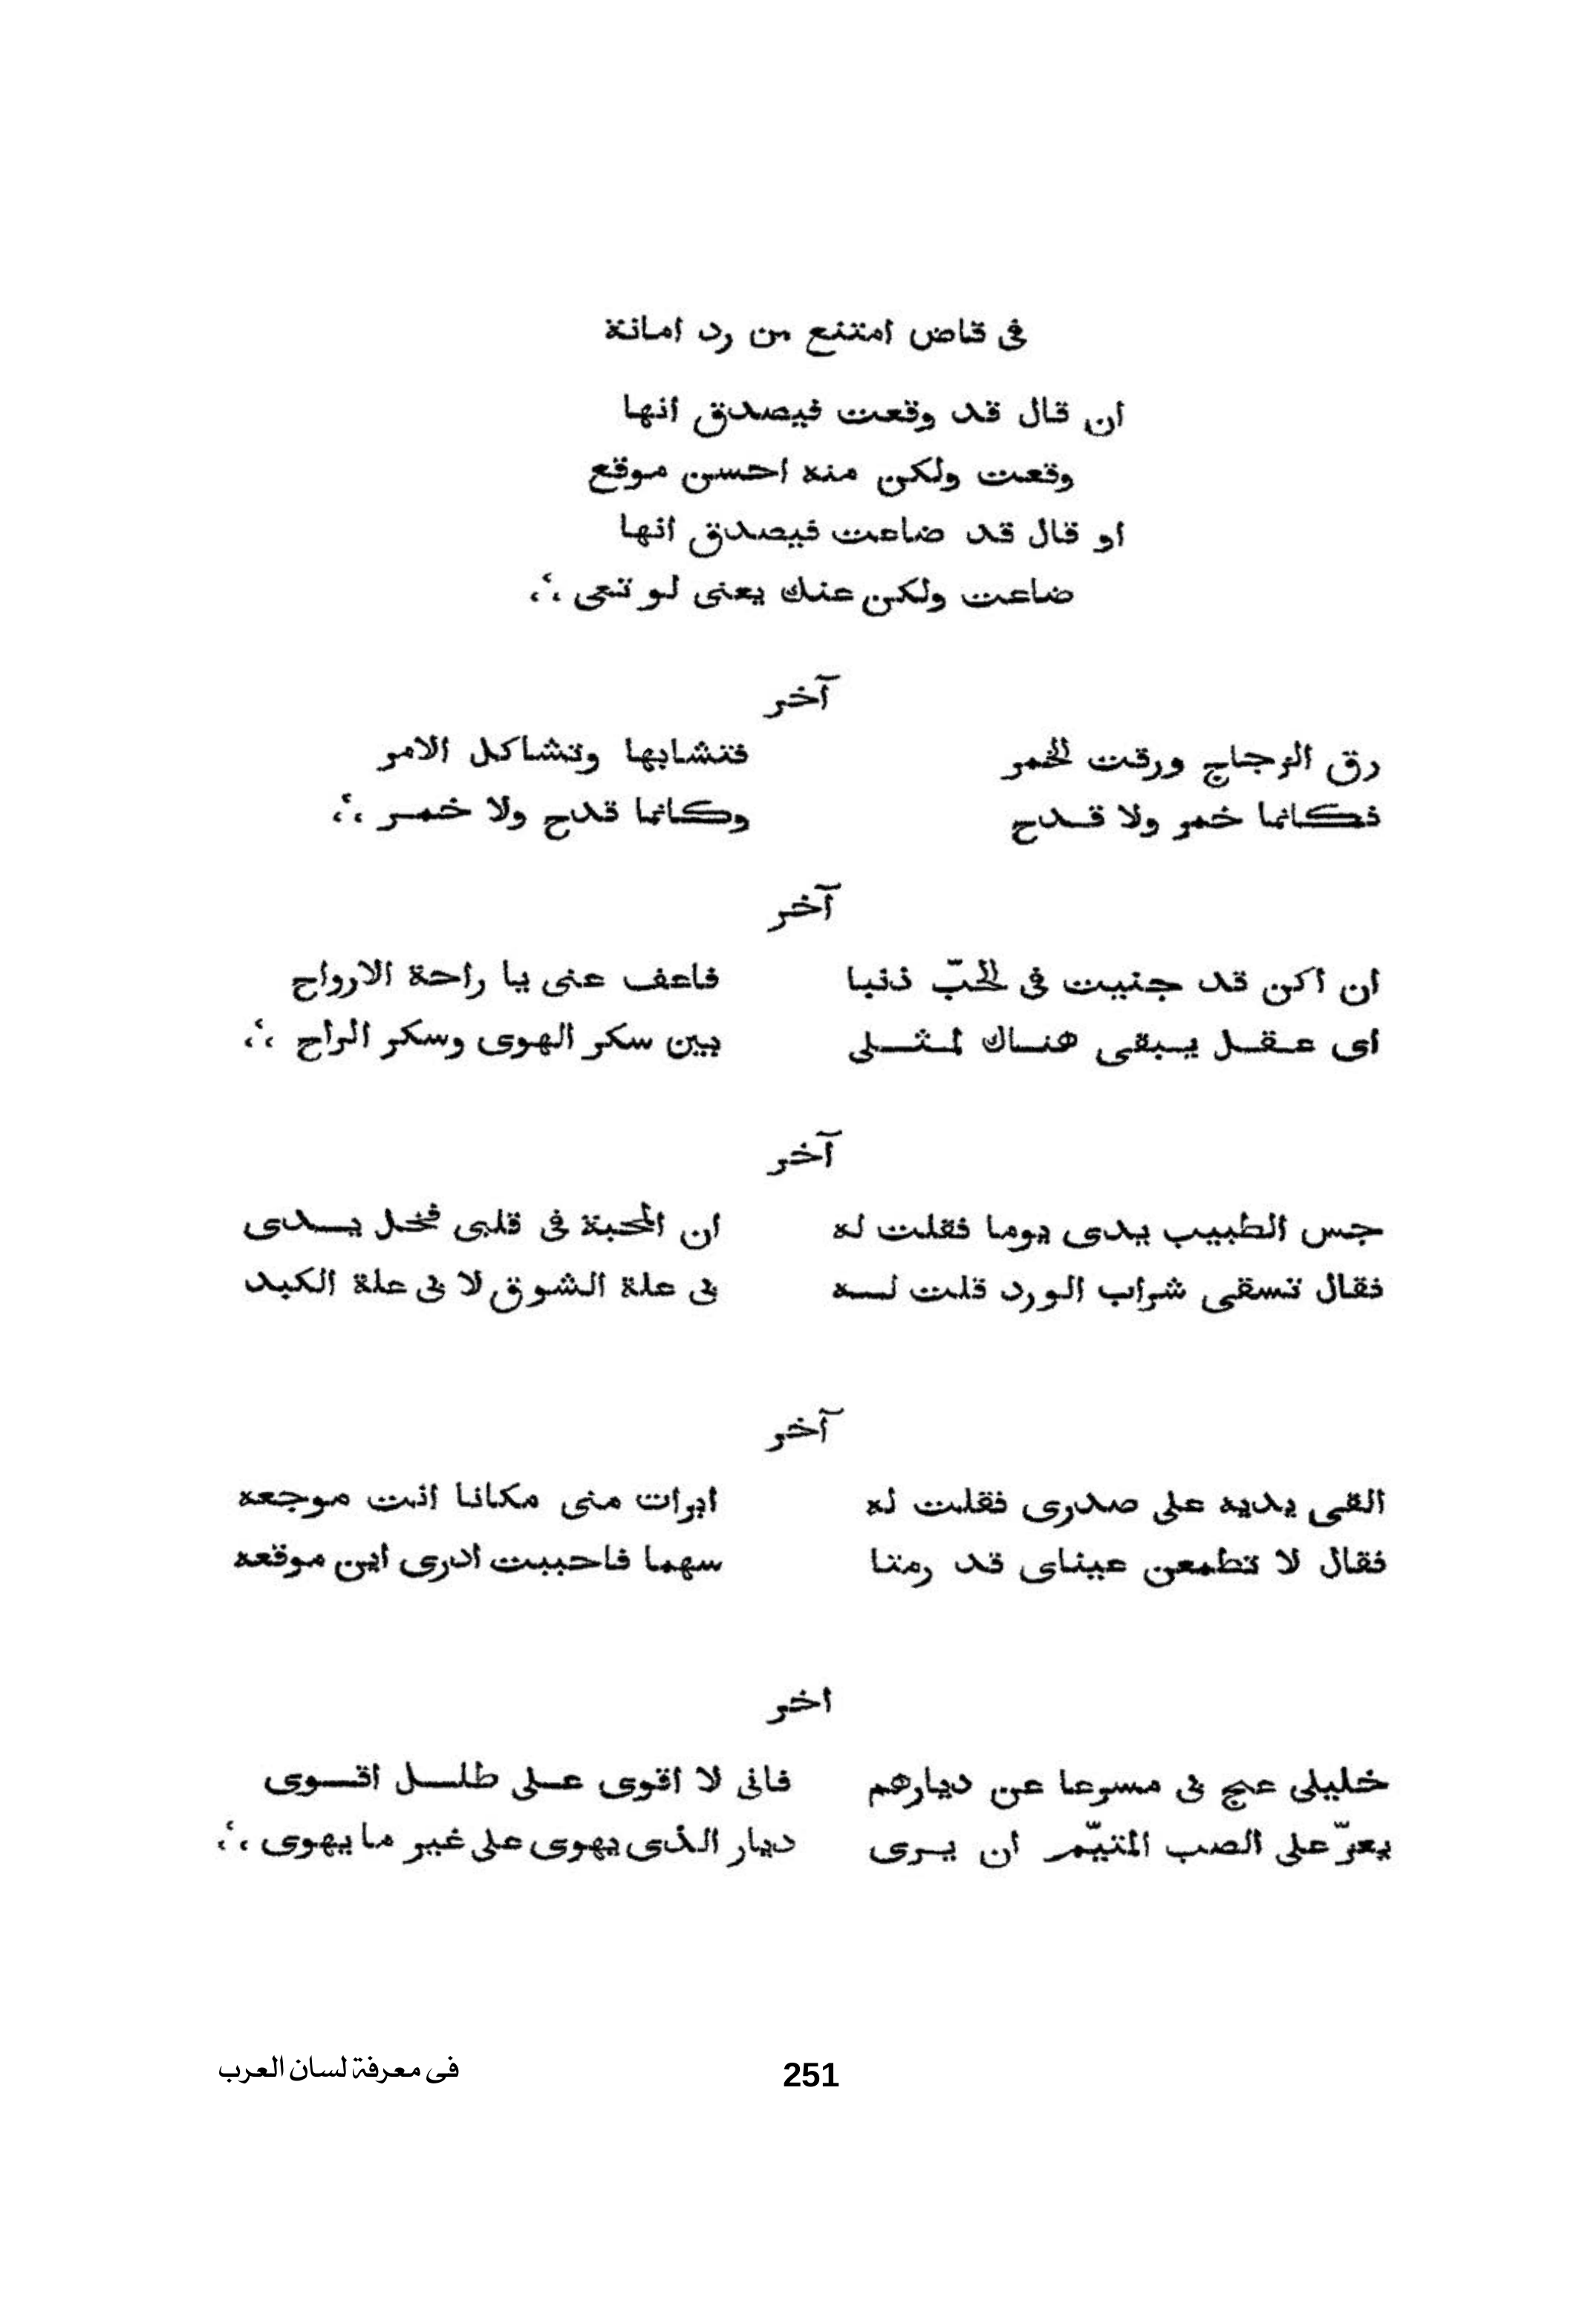 فى قاض امتنع من رد امانة
ان قال قد وقعت فيصدق انها
وقعت ولكن منه احسن موقع
او قال قد ضاعت فيصدق انها
ضاعت ولكن عنك يعنى لو تعى ؞
آخر
رق الزجاج ورقت الخمر فتشابها وتشاكل الامر
فكانما خمر ولا قدح وكانما قدح ولا خمر ؞
آخر
ان اكن قد جنيت فى الحبّ ذنبا فاعف عنى يا راحة الارواح
اى عقل يبقى هناك لمثلى بين سكر الهوى وسكر الراح ؞
آخر
جس الطبيب يدى يوما فقلت له ان المحبة فى قلبى فخل يدى
فقال تسقى شراب الورد قلت له فى علة الشوق لا فى علة الكبد
آخر
القى يديه على صدرى فقلت له ابرات منى مكانا انت موجعه
فقال لا تطمعن عيناى قد رمتا سهما فاحببت ادرى اين موقعه
اخر
خليلى عج فى مسرعا عن ديارهم فانى لا اقوى على طلل اقوى
يعزّ على الصب المتيّم ان يرى ديار الذى يهوى على غير ما يهوى ؞
251
فى معرفة لسان العرب